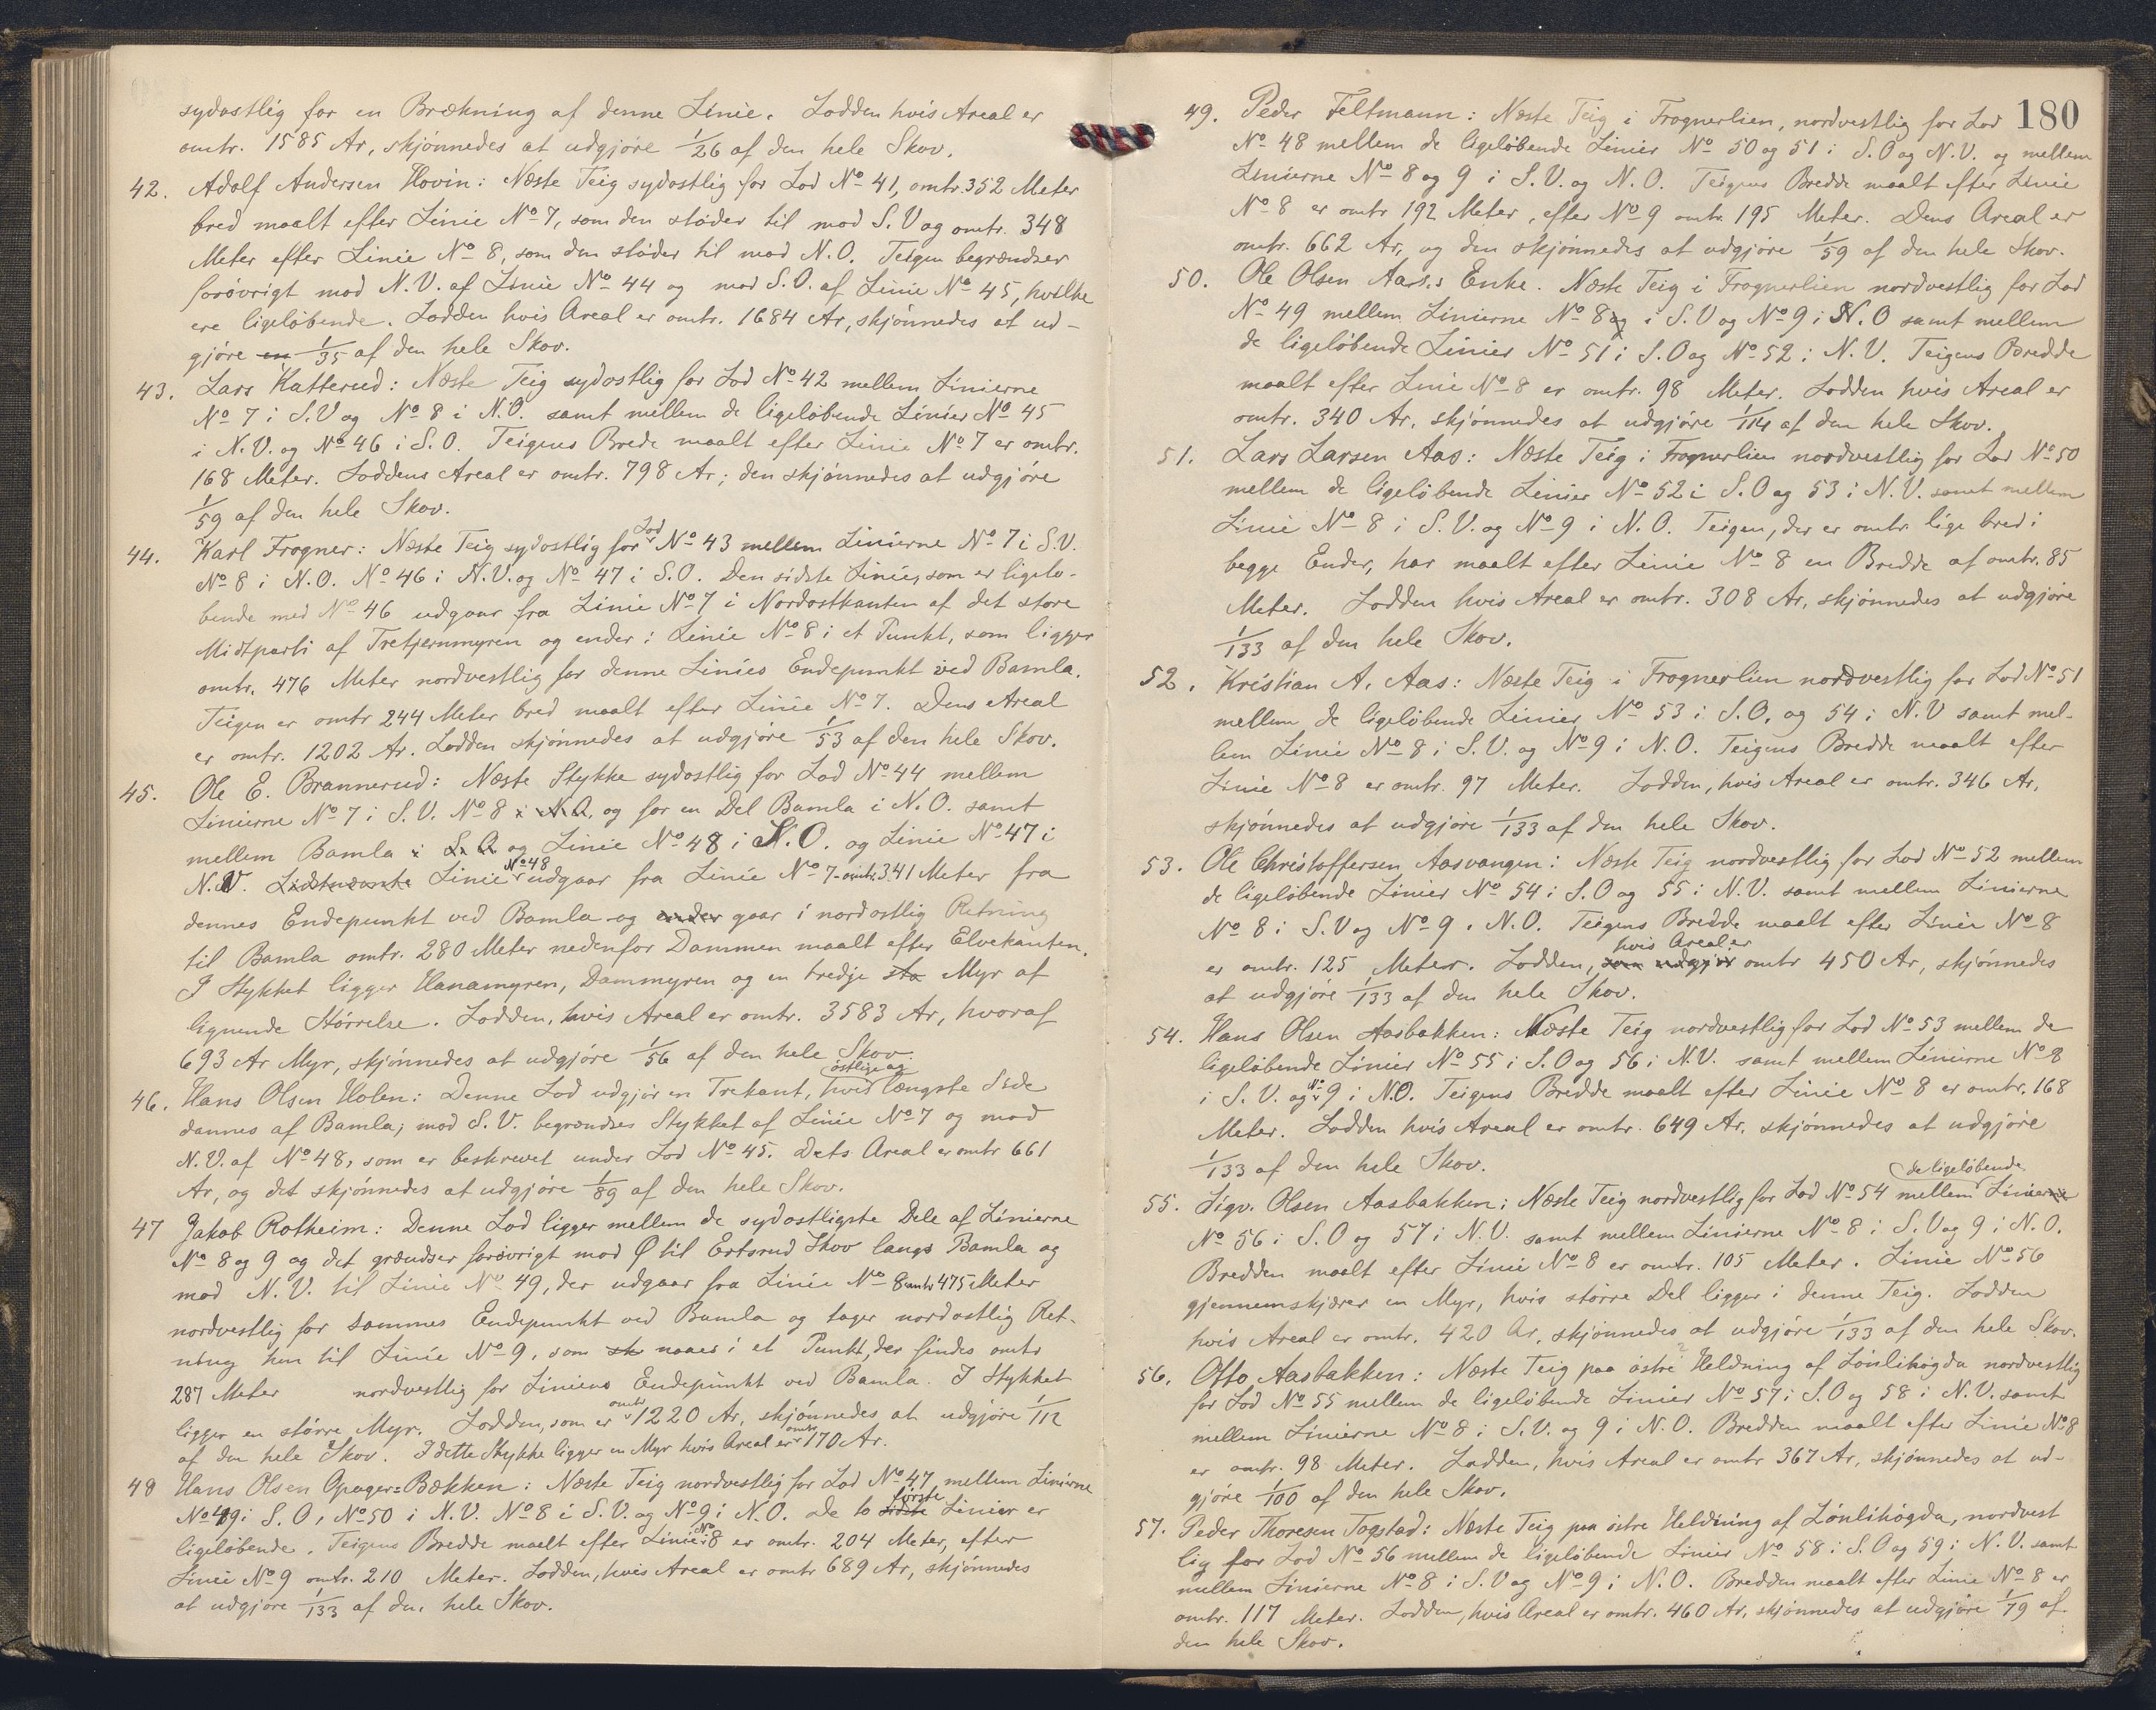 sydostlig for en Brækning af denne Linie. Lodden hvis Areal er
omtr. 1585 Ar, skjönnedes at udgjöre 1/26 af den hele Skov.
42. Adolf Andersen Hovin: Næste Teig sydostlig for Lod No 41, omtr. 352 Meter
bred maalt efter Linie No 7, som den stöder til mod S.V og omtr. 348
Meter efter Linie No 8, som den stöder til mod N.O. Teigen begrændses
forövrigt mod N.V. af Linie No 44 og mod S.O. af Linie No 45, hvilke
ere ligelöbende. Lodden hvis Areal er omtr. 1684 Ar, skjönnedes at ud-
gjöre en 1/35 af den hele Skov.
43. Lars Katterud: Næste Teig sydostlig for Lod No 42 mellem Linierne
No 7 i S.V og No 8 i N.O. samt mellem de ligelöbende Linier No 45
i N.V. og No 46 i S.O. Teigens Brede maalt efter Linie No 7 er omtr.
168 Meter. Loddens Areal er omtr. 798 Ar; den skjönnedes at udgjöre
1/59 af den hele Skov.
44. Karl Frogner: Næste Teig sydostlig for Lod No 43 mellem Linierne No 7 i S.V.
No 8 i N.O. No 46 i N.V. og No 47 i S.O. Den sidste Linie, som er ligelö-
bende med No 46 udgaar fra Linie No 7 i Nordostkanten af det store
Midtparti af Tretjernmyren og ender i Linie No 8 i et Punkt, som ligger
omtr. 476 Meter nordvestlig for denne Linies Endepunkt ved Bamla.
Teigen er omtr 244 Meter bred maalt efter Linie No 7. Dens Areal
er omtr. 1202 Ar. Lodden skjönnedes at udgjöre 1/53 af den hele Skov.
45. Ole E. Brannerud: Næste Stykke sydostlig for Lod No 44 mellem
Linierne No 7 i S.V. No 8 i N.O. og for en Del Bamla i N.O. samt
mellem Bamla i S.O. og Linie No 48 i S.O. og Linie No 47 i
N.V. Sidstnævnte Linie No 48 udgaar fra Linie No 7 omtr. 341 Meter fra
dennes Endepunkt ved Bamla og ender gaar i nordostlig Retning
til Bamla omtr. 280 Meter nedenfor Dammen maalt efter Elvekanten.
I Stykket ligger Hanamyren, Dammyren og en tredje sto Myr af
lignende Störrelse. Lodden, hvis Areal er omtr. 3583 Ar, hvoraf
693 Ar Myr, skjönnedes at udgjöre 1/56 af den hele Skov.
46. Hans Olsen Holen: Denne Lod udgjör en Trekant, hvis östlige og længste Side
dannes af Bamla; mod S.V. begrændses Stykket af Linie No 7 og mod
N.V. af No 48, som er beskrevet under Lod No 45. Dets Areal er omtr 661
Ar, og det skjönnedes at udgjöre 1/89 af den hele Skov.
47 Jakob Rotheim: Denne Lod ligger mellem de sydostligste Dele af Linierne
No 8 og 9 og det grændser forövrigt mod Ø til Ertsrud Skov langs Bamla og
mod N.V. til Linie No 49, der udgaar fra Linie No 8 omtr 475 Meter
nordvestlig for sammes Endepunkt ved Bamla og tager nordostlig Ret-
ning hen til Linie No 9, som sk naaes i et Punkt, der findes omtr
287 Meter nordvestlig for Liniens Endepunkt ved Bamla. I Stykket
ligger en större Myr. Lodden, som er omtr 1220 Ar, skjönnedes at udgjöre 1/112
af den hele Skov. I dette Stykke ligger en Myr hvis Areal er omtr 170 Ar.
48 Hans Olsen Opager=Bækken: Næste Teig nordvestlig for Lod No 47 mellem Linierne
No 49 i S.O, No 50 i N.V. No 8 i S.V. og No 9 i N.O. De to sidste förste Linier er
ligelöbende. Teigens Bredde maalt efter Linie No 8 er omtr. 204 Meter, efter
Linie No 9 omtr. 210 Meter. Lodden, hvis Areal er omtr 689 Ar, skjönnedes
at udgjöre 1/133 af den hele Skov.
180
49. Peder Feltmann: Næste Teig i Frognerlien, nordvestlig for Lod
No 48 mellem de ligelöbende Linier No 50 og 51 i S.O og N.V. og mellem
Linierne No 8 og 9 i S.V. og N.O. Teigens Bredde maalt efter Linie
No 8 er omtr 192 Meter, efter No 9 omtr. 195 Meter. Dens Areal er
omtr. 662 Ar, og den skjönnedes at udgjöre 1/59 af den hele Skov.
50. Ole Olsen Aas.s Enke. Næste Teig i Frognerlien nordvestlig for Lod
No 49 mellem Linierne No 8 og i S.V og No 9 i N.O samt mellem
de ligelöbende Linier No 51 i S.O og No 52 i N.V. Teigens Bredde
maalt efter Linie No 8 er omtr. 98 Meter. Lodden hvis Areal er
omtr. 340 Ar, skjönnedes at udgjöre 1/114 af den hele Skov.
51. Lars Larsen Aas: Næste Teig i Frognerlien nordvestlig for Lod No 50
mellem de ligelöbende Linier No 52 i S.O og 53 i N.V. samt mellem
Linie No 8 i S.V. og No 9 i N.O. Teigen, der er omtr. lige bred i
begge Ender, har maalt efter Linie No 8 en Bredde af omtr. 85
Meter. Lodden hvis Areal er omtr. 308 Ar, skjönnedes at udgjöre
1/133 af den hele Skov.
52. Kristian A. Aas: Næste Teig i Frognerlien nordvestlig for Lod No 51
mellem de ligelöbende Linier No 53 i S.O. og 54 i N.V samt mel-
lem Linie No 8 i S.V. og No 9 i N.O. Teigens Bredde maalt efter
Linie No 8 er omtr. 97 Meter. Lodden, hvis Areal er omtr. 346 Ar,
skjönnedes at udgjöre 1/133 af den hele Skov.
53. Ole Christoffersen Aasvangen: Næste Teig nordvestlig for Lod No 52 mellem
de ligelöbende Linier No 54 i S.O og 55 i N.V. samt mellem Linierne
No 8 i S.V og No 9 i N.O. Teigens Bredde maalt efter Linie No 8
er omtr. 125 Meter. Lodden, som udgjör hvis Areal er omtr 450 Ar, skjönnedes
at udgjöre 1/133 af den hele Skov.
54. Hans Olsen Aasbakken: Næste Teig nordvestlig for Lod No 53 mellem de
ligelöbende Linier No 55 i S.O og 56 i N.V. samt mellem Linierne No 8
i S.V. og No 9 i N.O. Teigens Bredde maalt efter Linie No 8 er omtr. 168
Meter. Lodden hvis Areal er omtr. 649 Ar, skjönnedes at udgjöre
1/133 af den hele Skov.
55. Sigv. Olsen Aasbakken: Næste Teig nordvestlig for Lod No 54 mellem de ligelöbende Linierne
No 56 i S.O og 57 i N.V. samt mellem Linierne No 8 i S.V og 9 i N.O.
Bredden maalt efter Linie No 8 er omtr. 105 Meter. Linie No 56
gjennemskjærer en Myr, hvis större Del ligger i denne Teig. Lodden
hvis Areal er omtr. 420 Ar, skjönnedes at udgjöre 1/133 af den hele Skov.
56. Otto Aasbakken: Næste Teig paa östre Heldning af Lönlihögda nordvestlig
for Lod No 55 mellem de ligelöbende Linier No 57 i S.O og 58 i N.V. samt
mellem Linierne No 8 i S.V. og 9 i N.O. Bredden maalt efter Linie No 8
er omtr. 98 Meter. Lodden, hvis Areal er omtr 367 Ar, skjönnedes at ud-
gjöre 1/100 af den hele Skov.
57. Peder Thoresen Togstad: Næste Teig paa östre Heldning af Lönlihögda, nordvest
lig for Lod No 56 mellem de ligelöbende Linier No 58 i S.O og 59 i N.V. samt
mellem Linierne No 8 i S.V og No 9 i N.O. Bredden maalt efter Linie No 8 er
omtr. 117 Meter. Lodden, hvis Areal er omtr. 460 Ar, skjönnedes at udgjöre 1/79 af
den hele Skov.